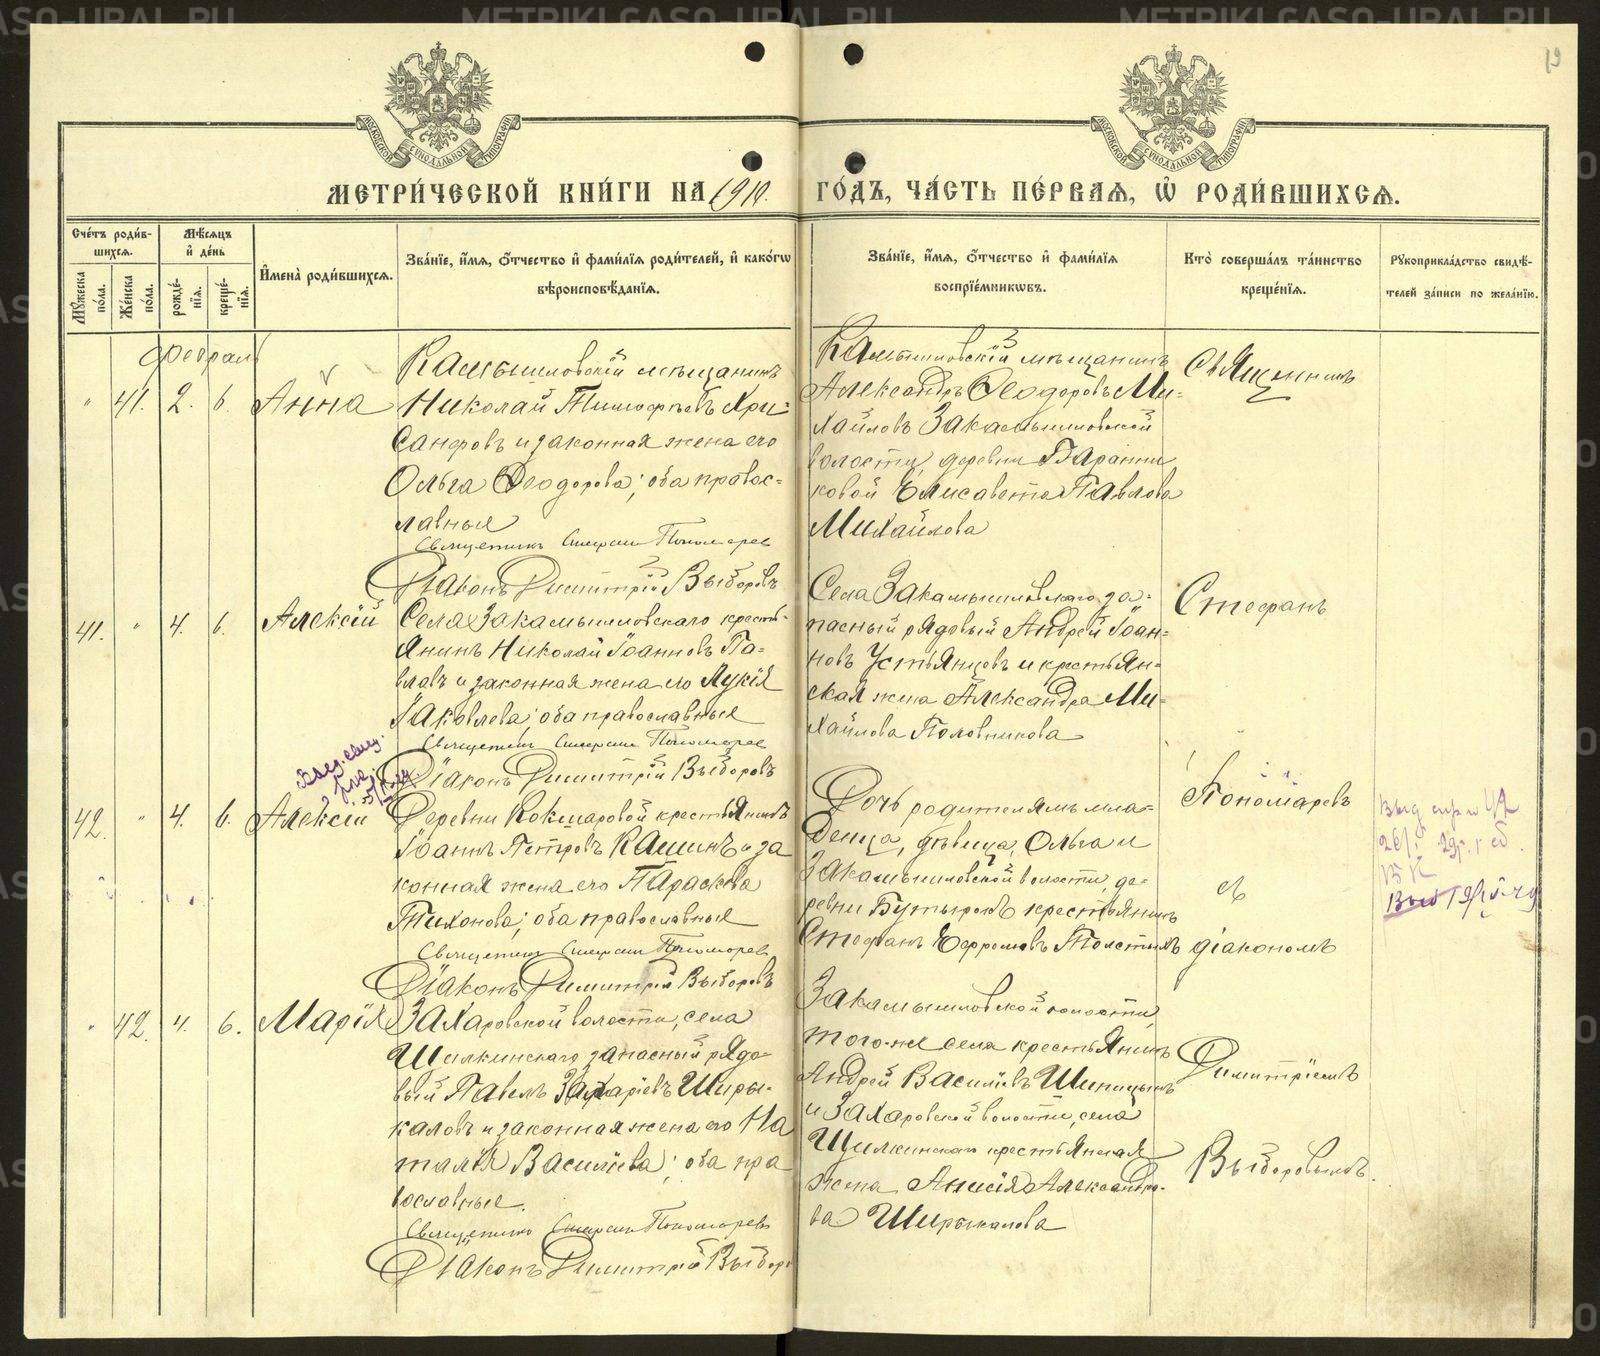 METRIKI.GASO-URAL.RU
19
МОСКОВСКОЙ СѴНОДАЛЬНОЙ ТИПОГРАФІИ
МОСКОВСКОЙ СѴНОДАЛЬНОЙ ТИПОГРАФІИ
МЕТРИ́ЧЕСКОЙ КНИ́ГИ НА 1910.
ГО́ДЪ, ЧА́СТЬ ПЕ́РВАѦ, Ѡ҆ РОДИ́ВШИХСѦ.
Сче́тъ роди́в-
шихсѧ.
Мѣ́сѧцъ
и҆ де́нь
Мꙋ́жеска по́ла.
Же́нска по́ла.
рожде́-нїѧ.
креще́-нїѧ.
И҆мена̀ роди́вшихсѧ.
Зва́нїе, и҆́мѧ, ѻ҆́тчество и҆ фами́лїѧ роди́телей, и҆ како́гѡ
вѣроисповѣ́данїѧ.
Зва́нїе, и҆́мѧ, ѻ҆́тчество и҆ фами́лїѧ
воспрїе́мникѡвъ.
Кто̀ соверша́лъ та́инство
креще́нїѧ.
Рꙋкоприкла́дство свидѣ́-
телей за́писи по жела́нїю.
Февраль
" 41. 2. 6. Анна
Камышловскій мѣщанинъ
Николай Тимофѣевъ Хри-
санфовъ и законная жена его
Ольга Ѳеодорова; оба правос-
лавные
Священникъ Симеон Пономарев
Діаконъ Димитрій Выборовъ
Камышловскій мѣщанинъ
Александръ Ѳеодоровъ Ми-
хайловъ Закамышловской
волости, деревни Баранни
ковой Елисавета Павлова
Михайлова
Священникъ
41. " 4. 6. Алексій
Села Закамышловскаго кресть-
янинъ Николай Іоанновъ Па-
влавъ и законная жена его Лукія
Іаковлева; оба православные
Священникъ Симеон Пономарев
Діаконъ Димитрій Выборовъ
Села Закамышловскаго за-
пасный рядовый Андрей Іоан-
новъ Устьянцовъ и крестьян-
ская жена Александра Ми-
хайлова Половникова
Стефанъ
42. " 4. 6. Алексій
Деревни Кокшаровой крестьянинъ
Іоаннъ Петровъ Кашинъ и за
конная жена его Параскева
Тихонова; оба православные
Священник Симеон Пономарев
Діаконъ Димитрій Выборовъ
Дочь родителямъ мла-
денца, дѣвица, Ольга и
Закамышловской волости, де-
ревни Бутырокъ крестьянинъ
Стефанъ Ефремовъ Толстыхъ
Пономаревъ
съ
діакономъ
" 42. 4. 6. Марія
Захаровской волости, села
Шилкинскаго запасный рядо-
вый Павелъ Захаріевъ Шыры-
каловъ и законная жена его На
талія Василіева; оба пра
вославные.
Священникъ Симеон Пономаревъ
Діаконъ Димитрій Выборо
Закамышловской волости,
того-же села крестьянинъ
Андрей Василіевъ Шипицынъ
и Захаровской волости, села
Шилкинскаго крестьянская
жена Анисія Александро-
ва Ширыкалова
Димитріемъ
Выборовымъ.